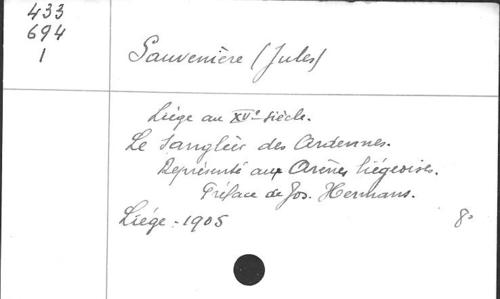 433
694
1
Sauvenière (Jules)
Liége au XVe siècle.
Le Sanglier des Ardennes.
Représenté aux Arènes liégeoises.
Préface de Jos. Hermans.
Liége - 1905 8o